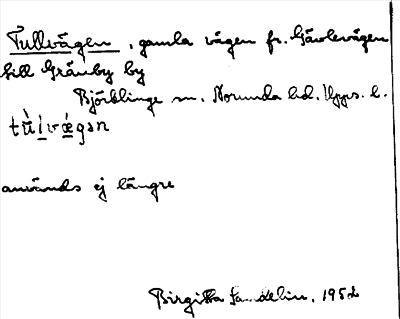 Tullvägen, gamla vägen fr. Gävlevägen
till Gränby by
Björklinge sn. Norunda hd. Upps. l.
tùlvǽgən
används ej längre
Birgitta Sandelin, 1952